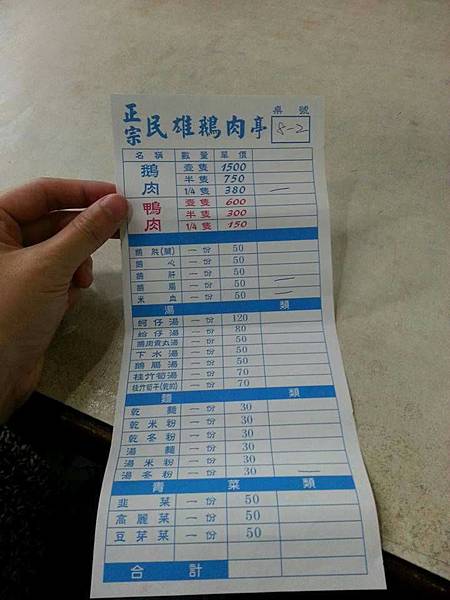 正宗民雄鵝肉亭 桌號 8-2
名稱 數量 單價
鵝肉 壹隻 1500
半隻 750
1/4隻 380 一
鴨肉 壹隻 600
半隻 300
1/4隻 150
鵝胘(腱) 一份 50
鵝心 一份 50
鵝肝 一份 50
鵝腸 一份 50 一
米血 一份 50 一
湯類
蚵仔湯 一份 120
蛤仔湯 一份 80
鵝肉貢丸湯 一份 50
下水湯 一份 50
鵝腸湯 一份 50
桂竹筍湯 一份 70
桂竹筍干(乾的) 一份 70
麵類
乾麵 一份 30
乾米粉 一份 30
乾冬粉 一份 30
湯麵 一份 30
湯米粉 一份 30
湯冬粉 一份 30 一
青菜類
韭菜 一份 50
高麗菜 一份 50
豆芽菜 一份 50
合計